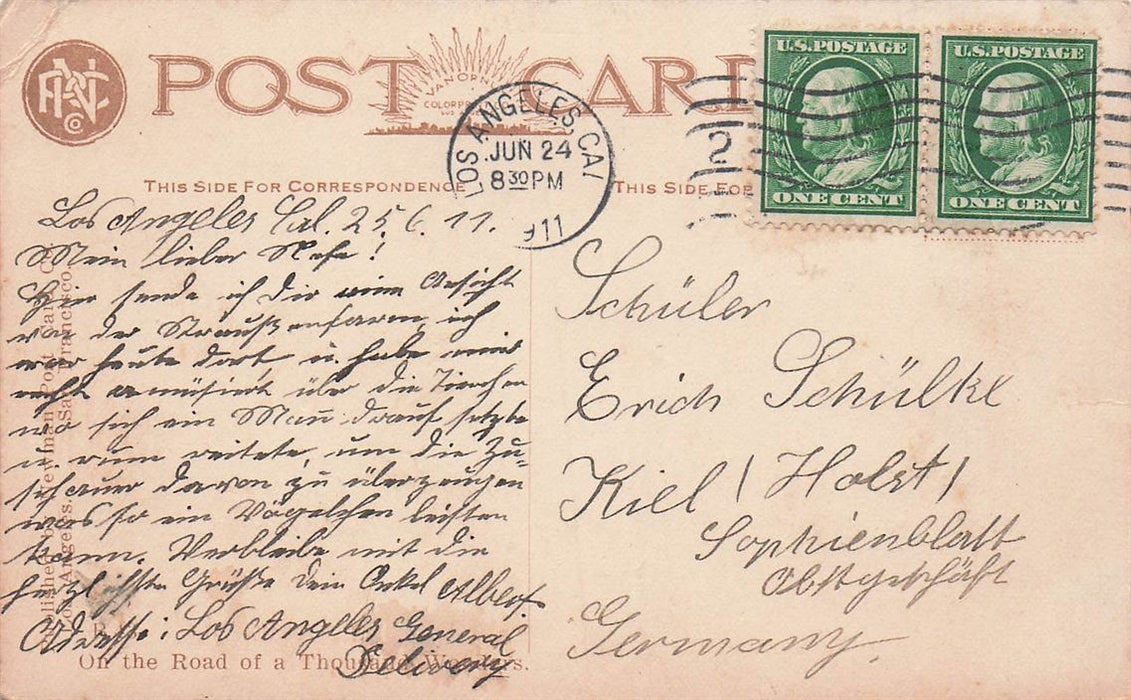 POST CARD
VAN ORNUM
COLORPRINT
LOS ANGELES, CAL
JUN 24
8 30 PM
1911
2
U.S. POSTAGE
ONE CENT
U.S. POSTAGE
ONE CENT
THIS SIDE FOR CORRESPONDENCE
THIS SIDE FOR
Los Angeles Cal. 25.6.11.
Mein lieber Neffe!
Hier sende ich Dir eine Ansicht
von der Straußenfarm, ich
war heute dort u. habe mich
recht amüsiert über die Tierchen
wo sich ein Mann drauf setzte
u. rum reitete, um die Zu-
schauer davon zu überzeugen
was so ein Vögelchen leisten
kann. Verbleibe mit die
herzlichsten Grüße Dein Onkel Albert
Adresse: Los Angeles General
Delivery
On the Road of a Thousand Wonders.
Published by Newman Post Card Co.
Los Angeles, San Francisco.
Schüler
Erich Schülke
Kiel (Holst)
Sophienblatt
Obstgeschäft
Germany.